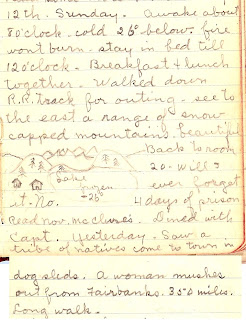 12th. Sunday. Awake about
8 o'clock. cold 26° below. fire
wont burn. stay in bed till
12 o'clock. Breakfast & lunch
together. Walked down
R.R. track for outing. see to
the east a range of snow
capped mountains. beautiful
Back to room
20. Will I
Lake
frozen
-26°
ever forget
it. No.
4 days of prison
Read nov. McClures. Dined with
Capt. Yesterday. Saw a
tribe of natives come to town in
dog sleds. A woman mushes
out from Fairbanks. 350 miles.
Long walk.